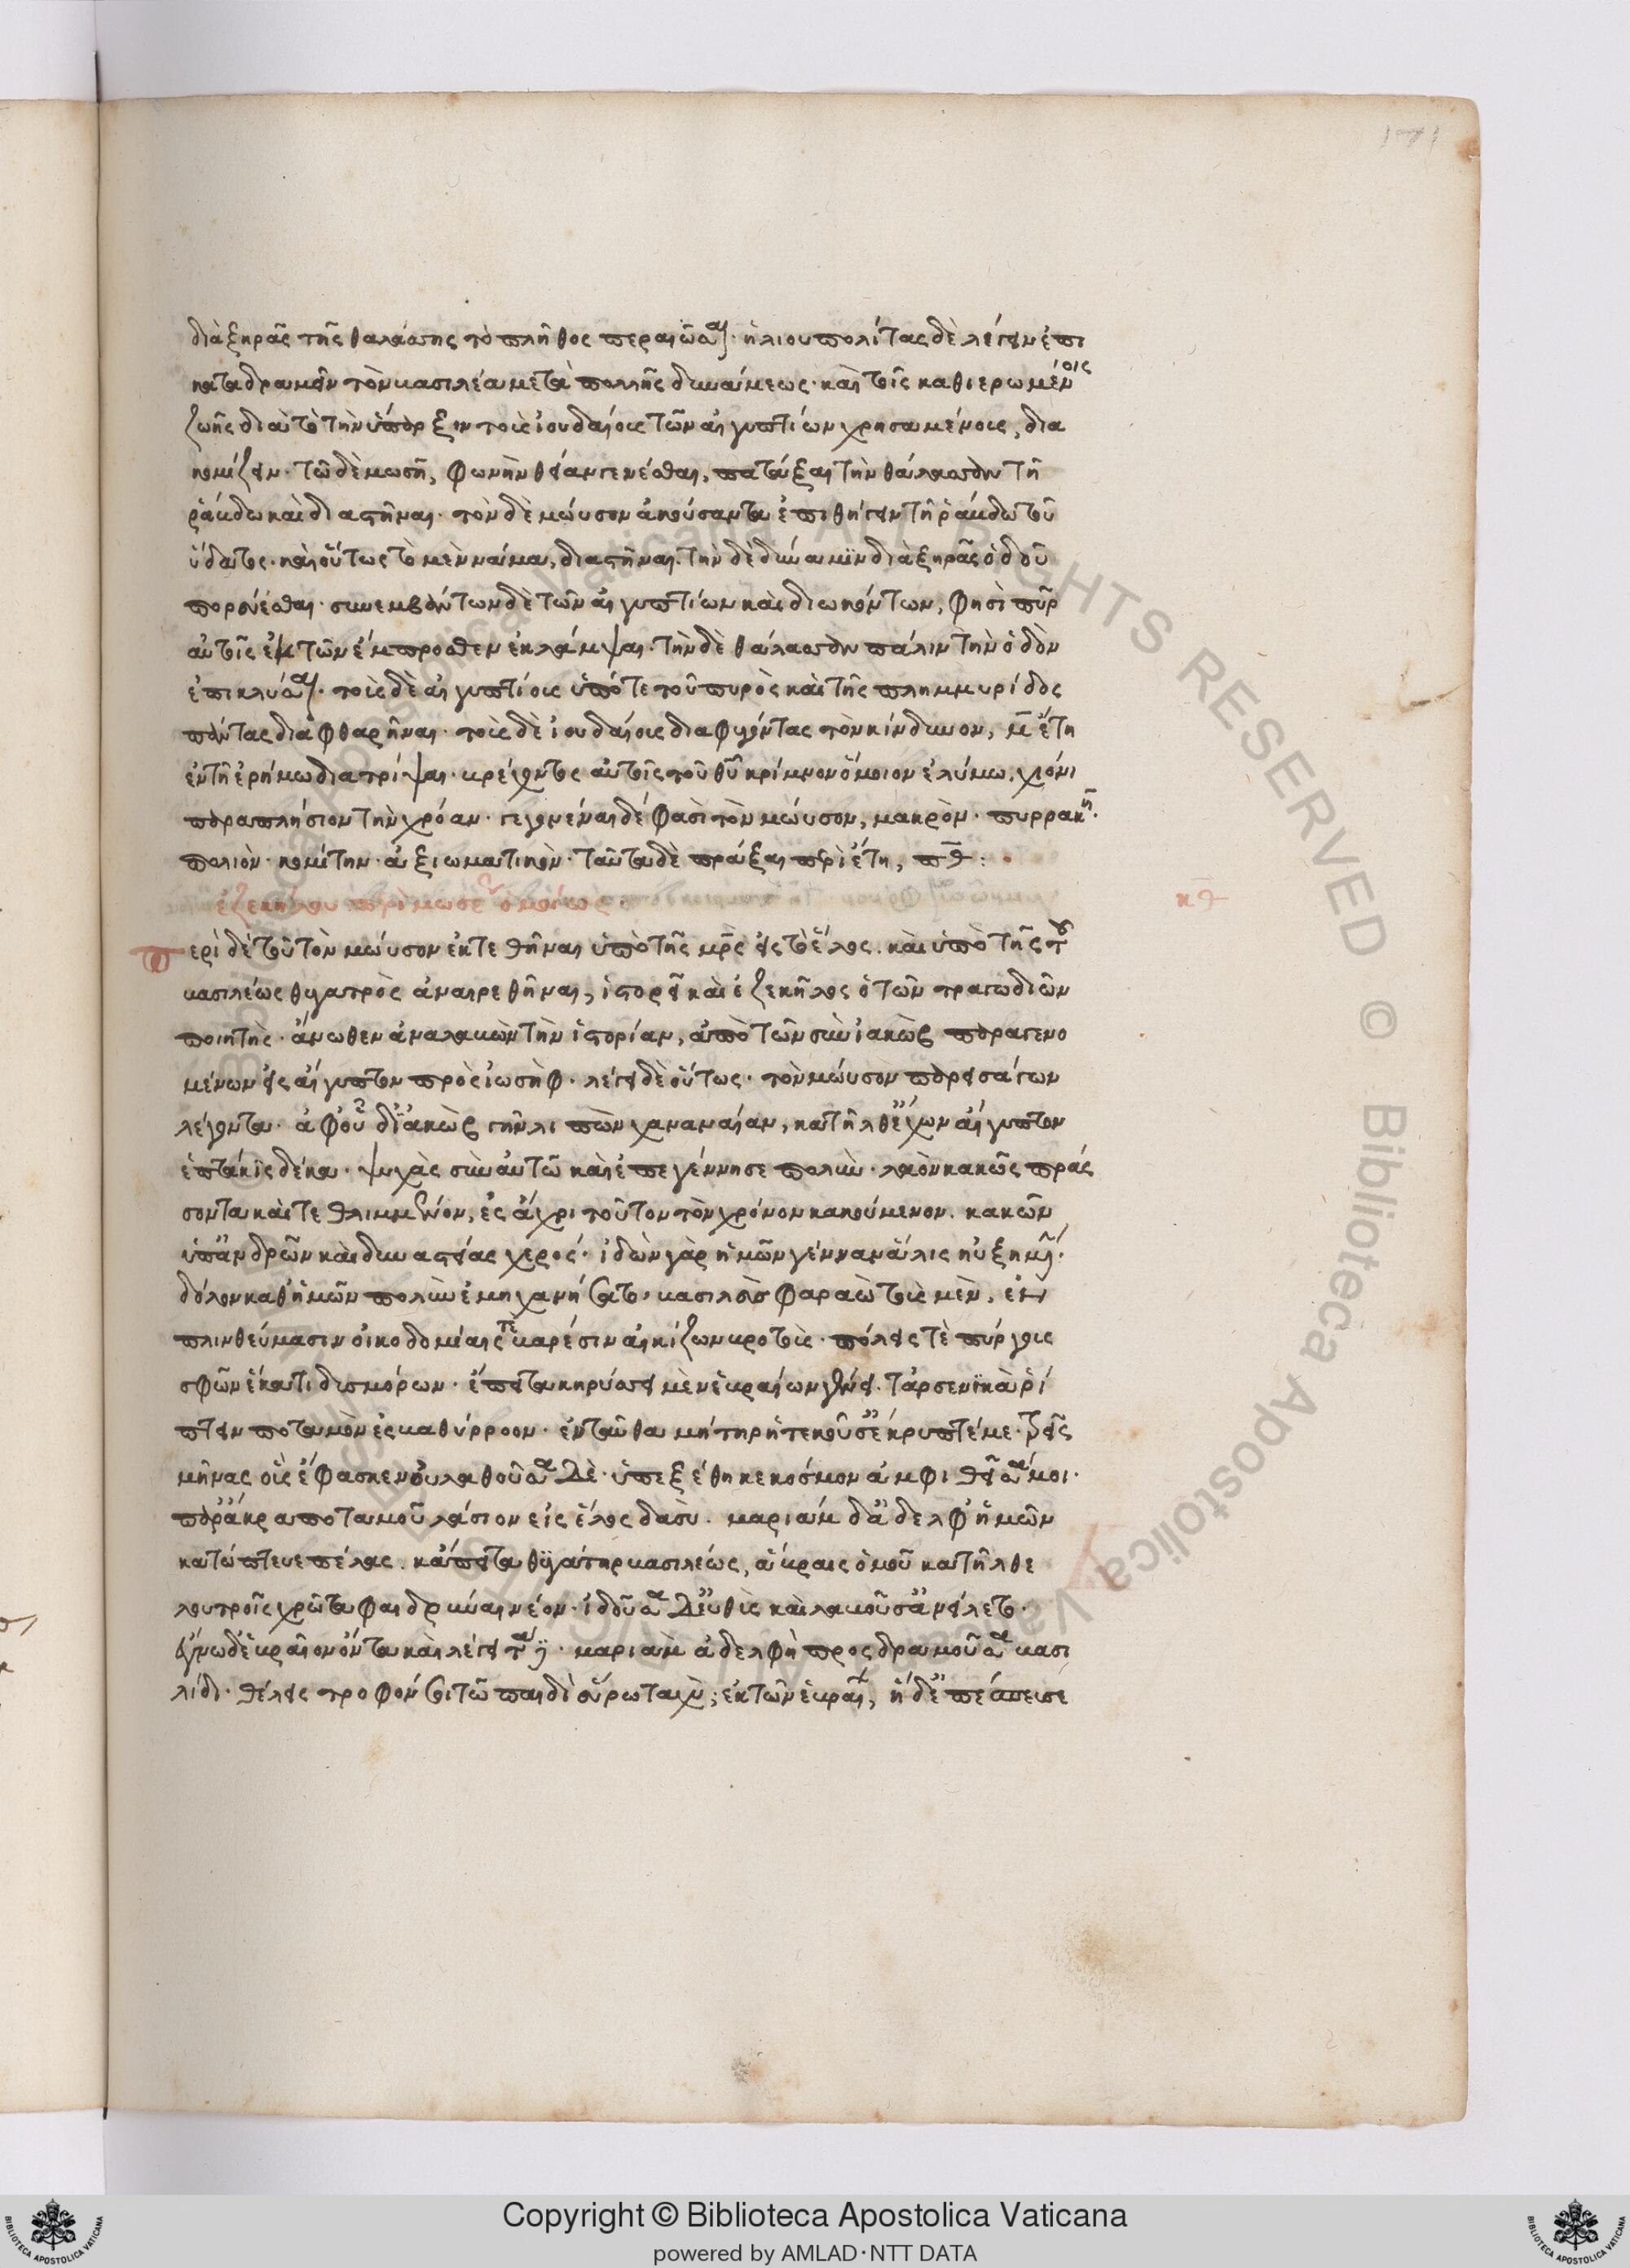 διὰ ξηρᾶς τῆς θαλάσσης τὸ πλῆθος περαιῶσαι· ἡλιουπολίτας δὲ λέγειν ἐπι
καταδραμεῖν τὸν βασιλέα μετὰ πολλῆς δυνάμεως· καὶ τοῖς καθιερωμένοις
ζώοις διὰ τὸ τὴν ὕπαρξιν τοὺς ἰουδαίους τῶν αἰγυπτίων χρησαμένους, δια
κομίζειν· τῶ δὲ μωσῆ, φωνὴν θείαν γενέσθαι, πατάξαι τὴν θάλασσαν τῆ
ῥάβδω καὶ διαστῆναι· τὸν δὲ μώϋσον ἀκούσαντα ἐπιθήγειν τῆ ῥάβδω τοῦ
ὕδατος· καὶ οὕτως τὸ μὲν νάμα, διαστῆναι. τὴν δὲ δύναμϊν διὰ ξηρᾶς ὁδοῦ
πορεύεσθαι· συνεμβάντων δὲ τῶν αἰγυπτίων καὶ διωκόντων, φησὶ πῦρ
αὐτοῖς ἐκ τῶν ἔμπροσθεν ἐκλάμψαι· τὴν δὲ θάλασσαν πάλιν τὴν ὁδὸν
ἐπικλύσαι· τοὺς δὲ αἰγυπτίους ὑπό τε τοῦ πυρὸς καὶ τῆς πλημμυρίδος
πάντας διαφθαρῆναι· τοὺς δὲ ἰουδαίους διαφυγόντας τὸν κίνδυνον, μ̄ ἔτη
ἐν τῆ ἐρήμω διατρίψαι· βρέχοντος αὐτοῖς τοῦ θῦ κρίμνον ὅμοιον ἐλύμω, χιόνι
παραπλήσιον τὴν χρόαν· γεγονέναι δέ φασὶ τὸν μώϋσον, μακρὸν· πυρρακῆ·
πολιὸν· κομήτην· ἀξιωματικὸν· ταῦτα δὲ πράξαι περὶ ἔτη, π̄θ̄:
ἐζεκήλου περὶ μωσέως ὁμοίως· κ̄θ̄
περὶ δὲ τοῦ τὸν μώϋσον ἐκτεθῆναι ὑπὸ τῆς μρ̄ς εἰς τὸ ἕλος. καὶ ὑπὸ τῆς τοῦ
βασιλέως θυγατρὸς ἀναιρεθῆναι, ἱστορεῖ καὶ ἐζεκῆλος ὁ τῶν τραγωδιῶν
ποιητὴς· ἄνωθεν ἀναλαβὼν τὴν ἱστορίαν, ἀπὸ τῶν σὺν ἰακὼβ παραγενο
μένων εἰς αἴγυπτον πρὸς ἰωσὴφ· λέγει δὲ οὕτως· τὸν μώϋσον παρεισάγων
λέγοντα· ἀφ' οὗ δ' ἰακὼβ γῆν λιπὼν χαναναίαν, κατῆλθ' ἔχων αἴγυπτον
ἑπτάκις δέκα· ψυχὰς σὺν αὐτῶ καὶ ἐπεγέννησε πολὺν· λαὸν κακῶς πράς
σοντα καὶ τεθλιμμένον, ἐς ἄχρι τοῦτον τὸν χρόνον κακούμενον. κακῶν
ὑπ' ἀνδρῶν καὶ δυναστείας χερός· ἰδὼν γὰρ ἡμῶν γένναν ἅλις ηὐξημένην·
δόλον καθ' ἡμῶν πολὺν ἐμηχανήσατο, βασιλεὺς φαραὼ τοὺς μὲν, ἐν
πλινθεύμασιν οἰκοδομίαις τὲ βαρέσιν αἰκίζων βροτοὺς· πόλεις τὲ πύργοις
σφῶν ἕκατι δυσμόρων· ἔπειτα κηρύσσει μὲν ἑβραίων γένει. τἀρσενϊκὰ ῥί
πτειν ποταμὸν ἐς βαθύρροον· ἐνταῦθα μήτηρ ἡ τεκοῦσ' ἔκρυπτέ με· τρεῖς
μῆνας ὡς ἔφασκεν οὐ λαθοῦσα δὲ· ὑπεξέθηκε κόσμον ἀμφιθεῖσά μοι·
παρ' ἄκρα ποταμοῦ λάσιον εἰς ἕλος δασὺ· μαριὰμ δ' ἀδελφή ἡμῶν
κατώπτευε πέλας. κἄπειτα θϋγάτηρ βασιλέως, ἅβραις ὁμοῦ κατῆλθε
λουτροῖς χρῶτα φαιδρύναι νέον· ἰδοῦσα δ' εὐθὺς καὶ λαβοῦσ' ἀνείλετο·
ἔγνω δ' ἑβραῖον ὄντα καὶ λέγει ταῦτα· μαριὰμ ἀδελφὴ προσδραμοῦσα βασι
λίδι· θέλεις τροφόν σοι τῶ παιδὶ εὕρω ταχὺ; ἐκ τῶν ἑβραίων, ἡ δ' ἐπέσπευσε